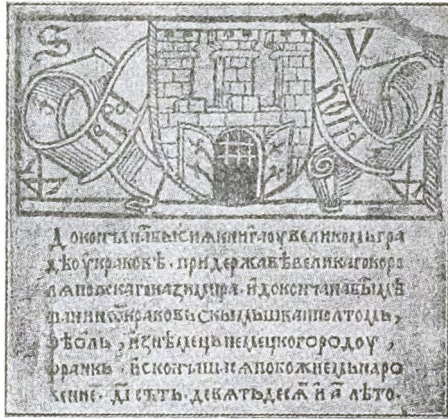 S V
Докончана бы́ сиꙗ книга оу великомь гра
дѣ оу краковѣ. при державѣ великаго коро
лꙗ польскаго казимира. и докончана бы́ мѣ
щанином краковьскымь шваиполтомь,
фѣоль, из нѣмець немецкого родоу,
франкь. и скончашасѧ по божиемь наро
жение. д҃і сътъ. девѧтьдесѧ и а҃ лѣто.